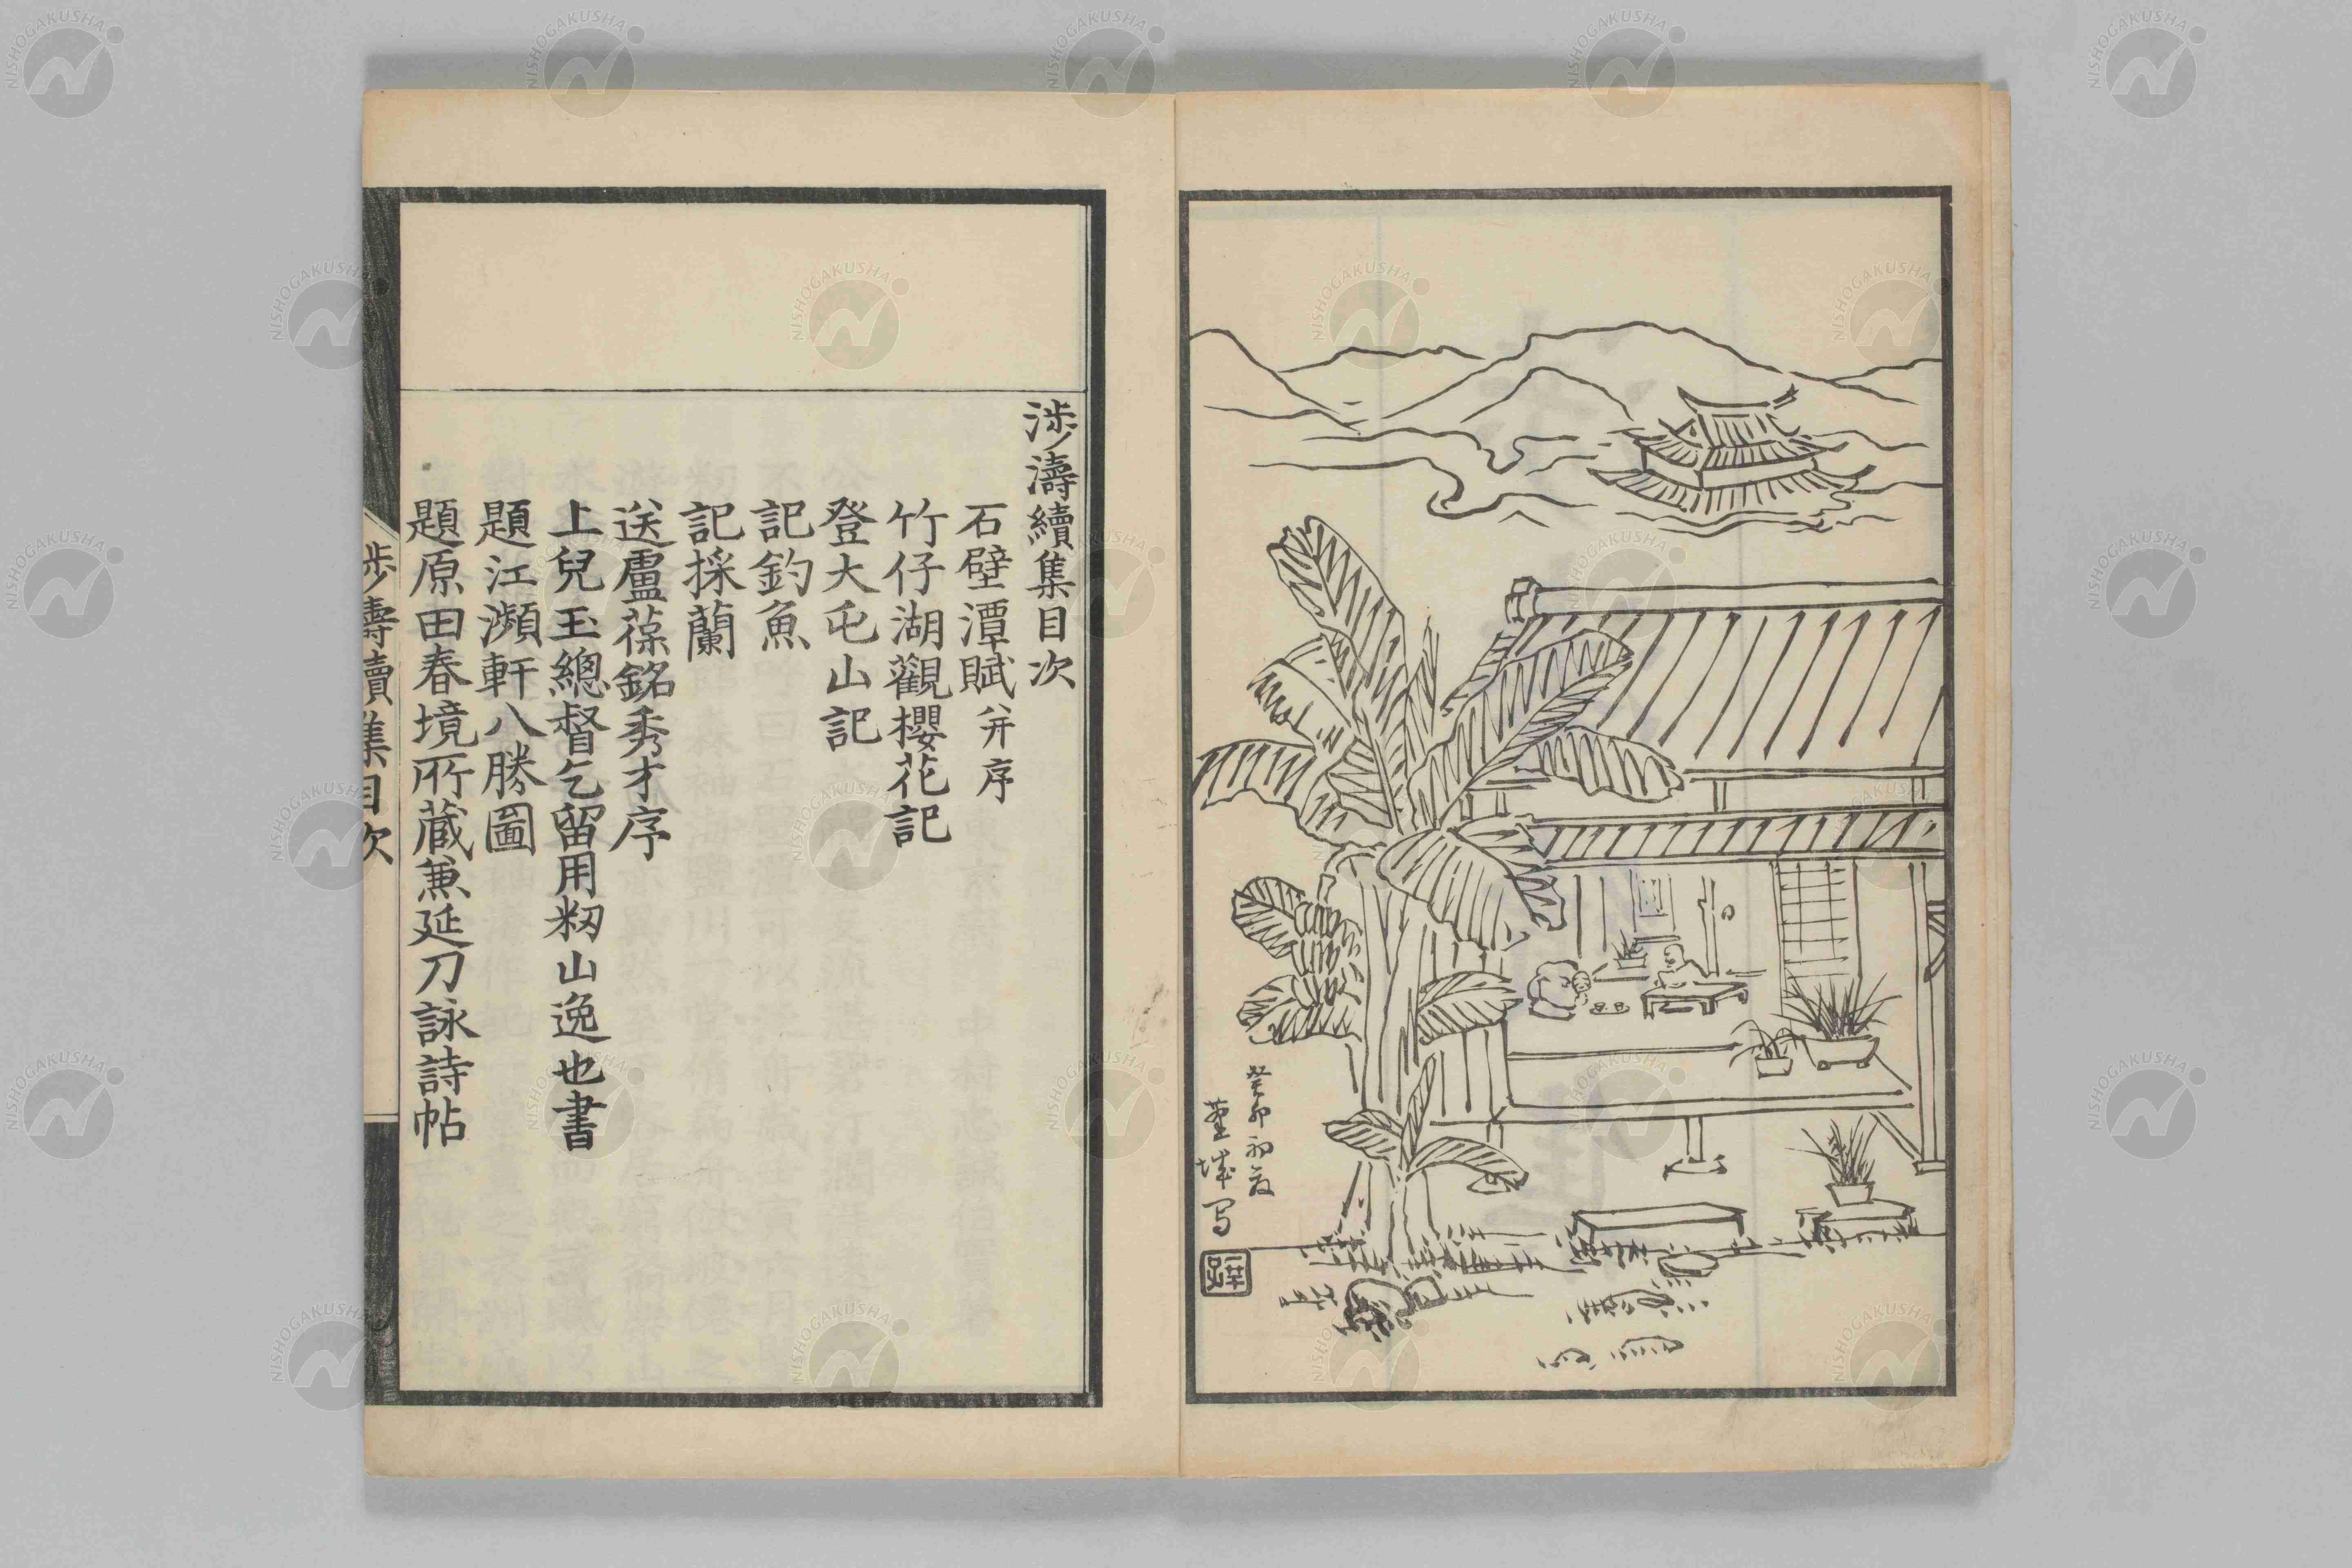 癸卯初夏
堇堿写
涉濤續集目次
石壁潭賦 并序
竹仔湖觀櫻花記
登大屯山記
記釣魚
記採蘭
送盧葆銘秀才序
上兒玉總督乞留用籾山逸也書
題江瀕軒八勝圖
題原田春境所藏兼延刀詠詩帖
涉濤續集目次
NISHOGAKUSHA